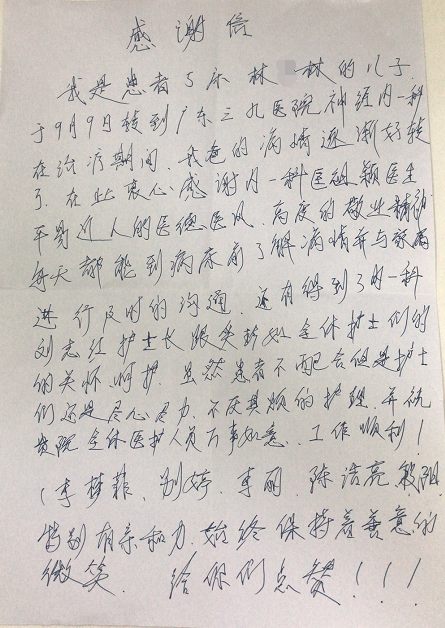 感谢信
我是患者5床 林 林的儿子.
于9月9日转到广东三九医院神经内一科
在治疗期间. 我爸的病情逐渐好转
了. 在此衷心感谢内一科医 颖医生
平易近人的医德医风. 高度的敬业精神
每天都能到病床前了解病情并与家属
进行及时的沟通. 还有得到了内一科
刘志红护士长跟 全体护士们的
的关怀、呵护. 虽然患者不配合但是护士
们还是尽心尽力. 不厌其烦的护理. 并祝
贵院全体医护人员万事如意、工作顺利!
(李梦菲、别婷、李丽、陈浩亮
特别有亲和力. 始终保持着善意的
微笑. 给你们点赞!!!